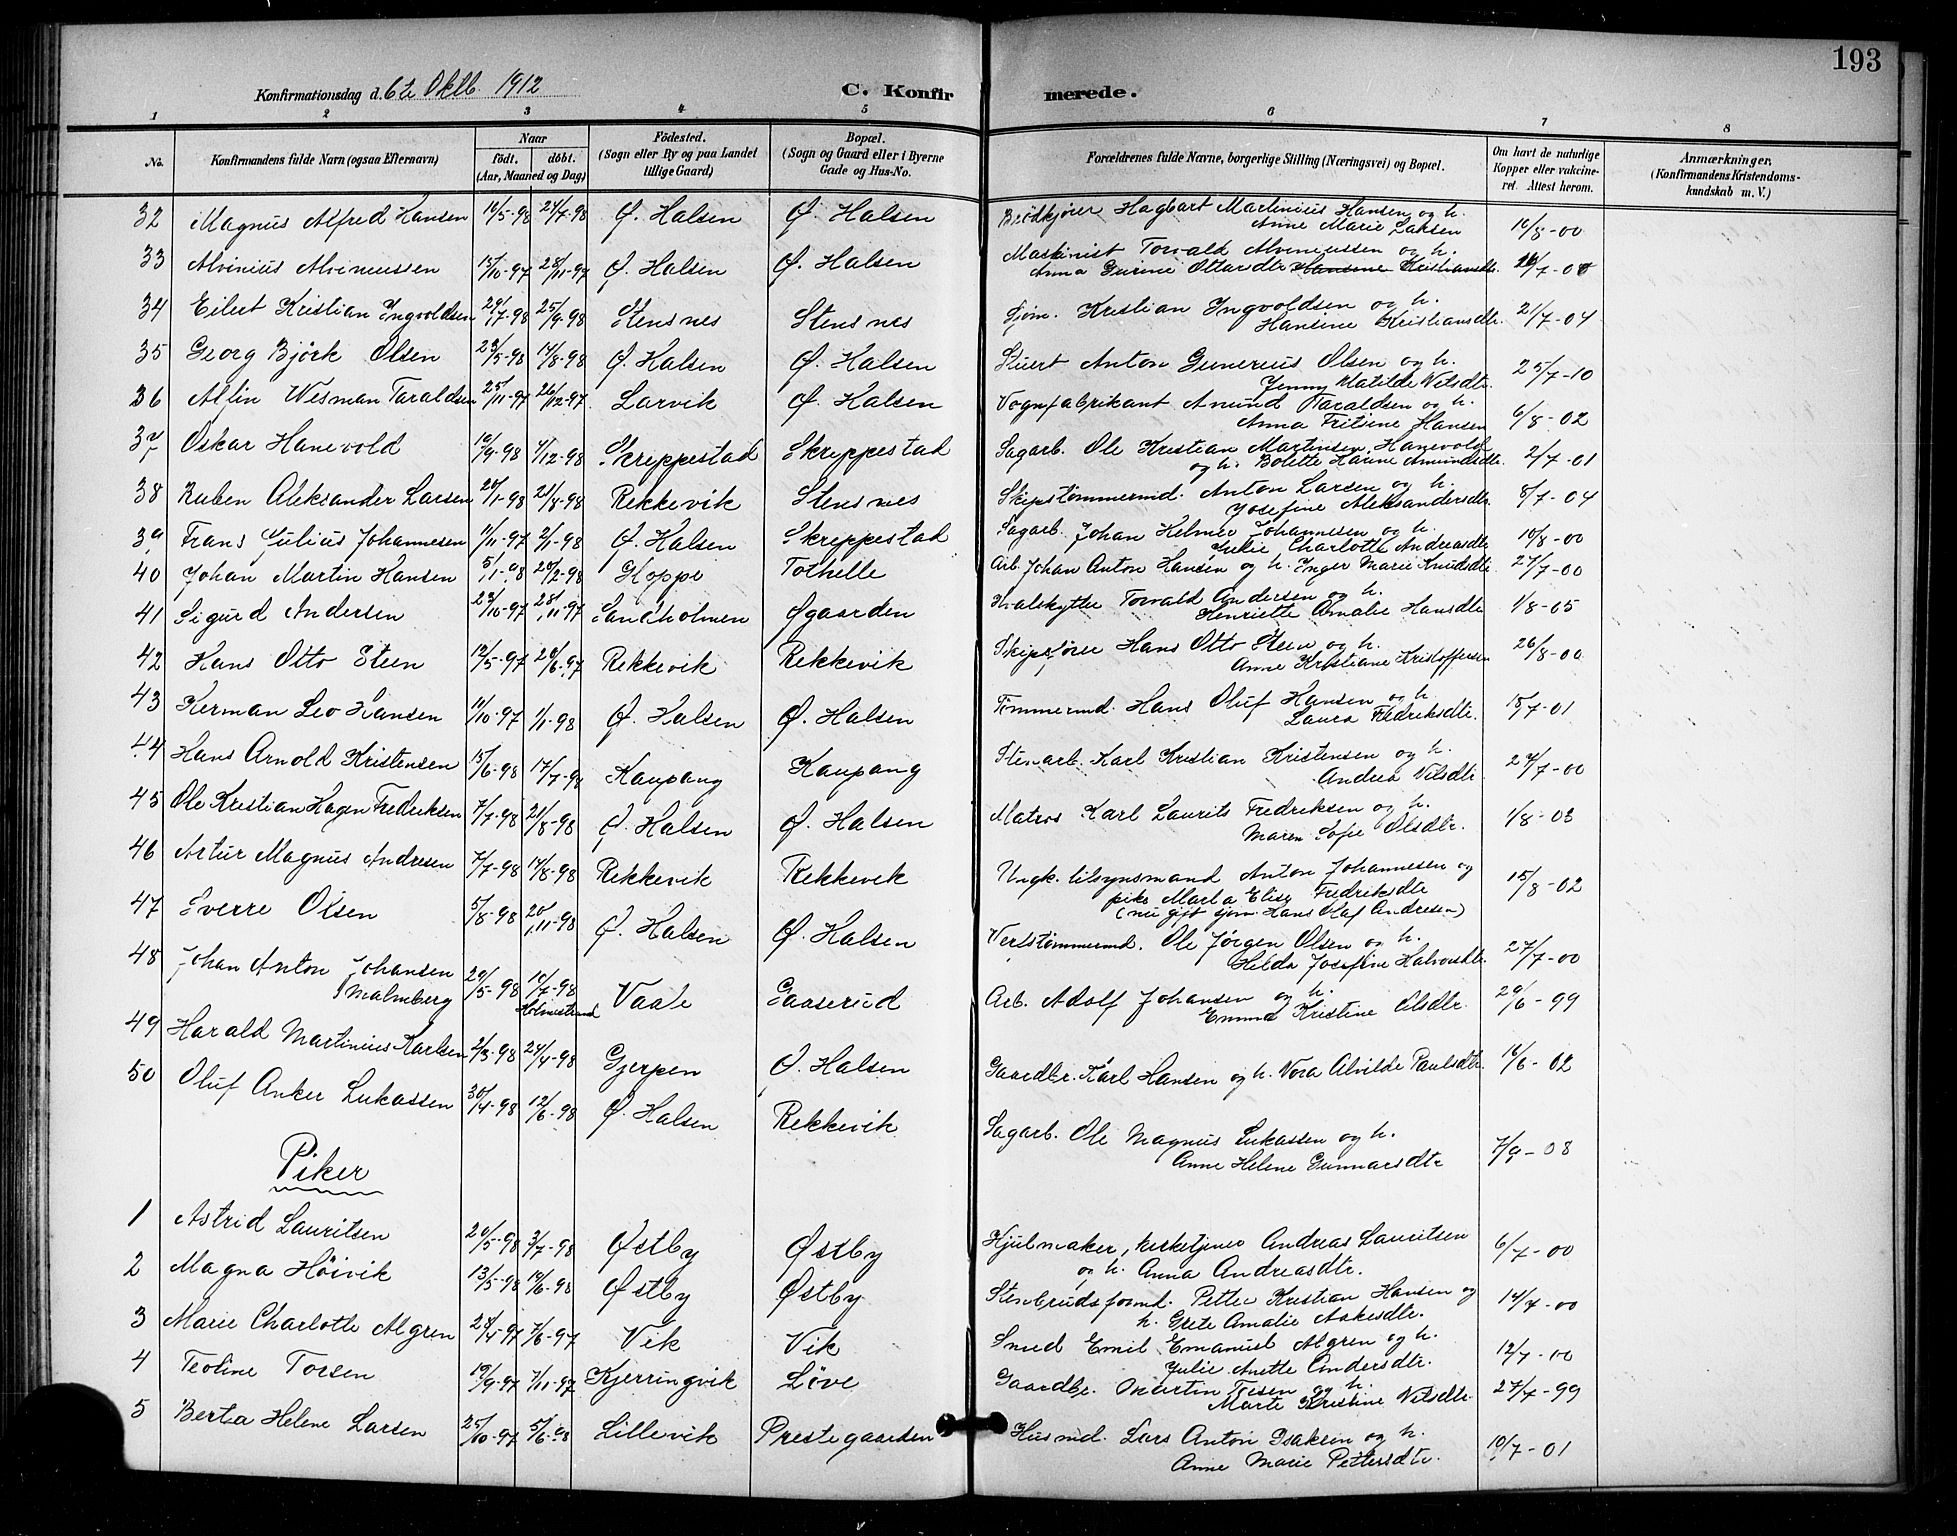 193
Konfirmationsdag d. 6te Oktb. 1912
C. Konfirmerede.
1 2 3 4 5 6 7 8
No. Konfirmandens fulde Navn (ogsaa Efternavn) Naar født. døbt. (Aar, Maaned og Dag) Fødested. (Sogn eller By og paa Landet tillige Gaard) Bopæl. (Sogn og Gaard eller i Byerne Gade og Hus-No. Forældrenes fulde Navne, borgerlige Stilling (Næringsvei) og Bopæl. Om havt de naturlige Kopper eller vakcineret. Attest herom. Anmærkninger, (Konfirmandens Kristendomskundskab m. V.)
32 Magnus Alfred Hansen 16/5-98 24/7-98 Ø. Halsen Ø. Halsen Brødkjører Hagbart Martinius Hansen og h. Anne Marie Laksen 10/8-00
33 Alvinius Alviniussen 15/10-97 28/11-97 Ø. Halsen Ø. Halsen Maskinist Torvald Alviniussen og h. Anna Gurine Ottarsdtr Hansine Kristiansdtr.
34 Eilert Kristian Ingvoldsen 29/7-98 25/9-98 Stensnes Stensnes Sjøm. Kristian Ingvoldsen og h. Hansine Kristiansdtr. 21/7-04
35 Georg Bjørk Olsen 23/5-98 14/8-98 Ø. Halsen Ø. Halsen Stuert Anton Gunerius Olsen og h. Jenny Matilde Nilsdtr. 25/7-10
36 Alfin Wisman Taraldsen 25/11-97 26/12-97 Larvik Ø. Halsen Vognfabrikant Anund Taraldsen og h. Anna Fritsine Hansen 6/8-02
37 Oskar Hanevold 10/9-98 4/12-98 Skreppestad Skreppestad Sagarb. Ole Kristian Martinsen Hanevold og h. Bolette Karine Amundsdtr. 2/7-01
38 Ruben Aleksander Larsen 20/1-98 21/8-98 Rekkevik Stensnes Skipstømmermd. Anton Larsen og h. Josefine Aleksandersdtr. 8/7-04
39 Frans Julius Johannesen 11/11-97 2/1-98 Ø. Halsen Skreppestad Sagarb. Johan Helmer Johannesen og h. Julie Charlotte Andreasdtr 10/8-00
40 Johan Martin Hansen 5/1-98 20/2-98 Hoppe Tothelle Arb. Johan Anton Hansen og h. Inger Marie Knudsdtr. 27/7-00
41 Sigurd Andersen 23/10-97 28/11-97 Sandholmen Øgaarden Hvalskytter Torvald Andersen og h. Henriette Amalie Hansdtr 1/8-05
42 Hans Otto Steen 12/5-97 20/6-97 Rekkevik Rekkevik Skipsfører Hans Otto Steen og h. Anne Kristiane Kristoffersen 26/8-00
43 Herman Leo Hansen 11/10-97 1/1-98 Ø. Halsen Ø. Halsen Tømmermd. Hans Oluf Hansen og h. Laura Fredriksdtr. 15/7-01
44 Hans Arnold Kristensen 15/6-98 17/7-98 Kaupang Kaupang Stenarb. Karl Kristian Kristensen og h. Andrea Nilsdtr. 24/7-00
45 Ole Kristian Hagen Fredriksen 7/7-98 21/8-98 Ø. Halsen Ø. Halsen Matros Karl Laurits Fredriksen og h. Maren Sofie Olsdtr. 1/8-03
46 Artur Magnus Andresen 7/7-98 14/8-98 Rekkevik Rekkevik Ungk. tilsynsmand Anton Johannesen og pike Marta Elise Fredriksdtr (nu gift sjøm. Hans Olaf Andresen) 15/8-02
47 Sverre Olsen 5/8-98 20/11-98 Ø. Halsen Ø. Halsen Verktømmermd. Ole Jørgen Olsen og h. Hilda Josefine Halvorsdtr. 27/7-00
48 Johan Anton Johansen Malmberg 29/5-98 10/7-98 Holmestrand Vaale Gaaserud Arb. Adolf Johansen og h. Emma Kristine Olsdtr. 20/6-99
49 Harald Martinius Karlsen 2/3-98 24/4-98 Gjerpen Ø. Halsen Gaardbr. Karl Hansen og h. Nora Alvilde Paulsdtr. 16/6-02
50 Oluf Anker Lukassen 30/4-98 12/6-98 Ø. Halsen Rekkevik Sagarb. Ole Magnus Lukassen og h. Anne Helene Gunnarsdtr 7/9-08
Piker
1 Astrid Lauritsen 20/5-98 3/7-98 Østby Østby Hjulmaker, kirketjener Andreas Lauritsen og h. Anna Andreasdtr. 6/7-00
2 Magna Höivik 13/5-98 19/6-98 Østby Østby Stenbrudsformd. Petter Kristian Hansen og h. Grete Amalie Aakesdtr. 14/7-00
3 Marie Charlotte Algren 28/4-97 7/6-97 Vik Vik Smed Emil Emanuel Algren og h. Julie Anette Andersdtr. 12/7-00
4 Teoline Torsen 19/9-97 7/11-97 Kjerringvik Løve Gaardbr. Martin Torsen og h. Marte Kristine Nilsdtr. 27/7-99
5 Berta Helene Larsen 25/10-97 5/6-98 Lillevik Prestegaarden Husmd. Lars Anton Isaksen og h. Anne Marie Pettersdtr. 10/7-01